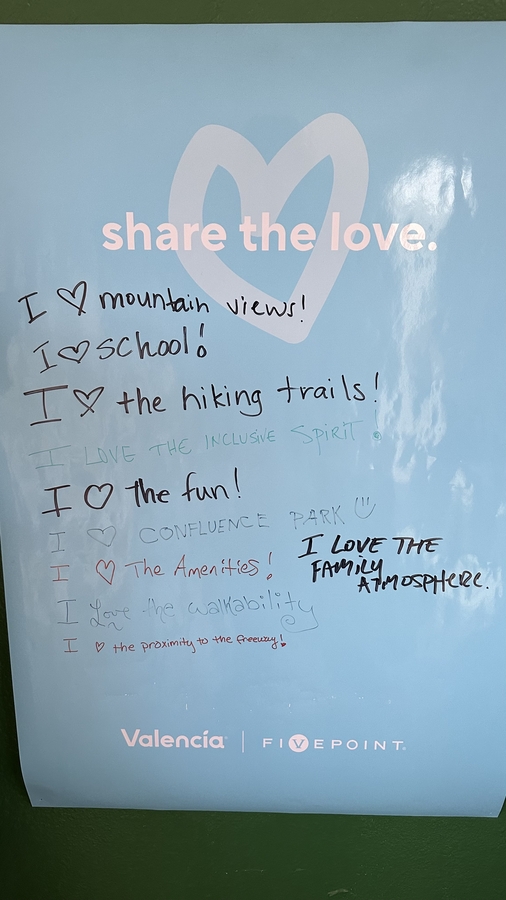 share the love.
I ♡ mountain views!
I ♡ school!
I ♡ the hiking trails!
I LOVE THE INCLUSIVE SPIRIT!
I ♡ The fun!
I ♡ CONFLUENCE PARK
I LOVE THE
FAMILY
ATMOSPHERE.
I ♡ The Amenities!
I Love the walkability
I ♡ the proximity to the freeway!
Valencia | FIVEPOINT